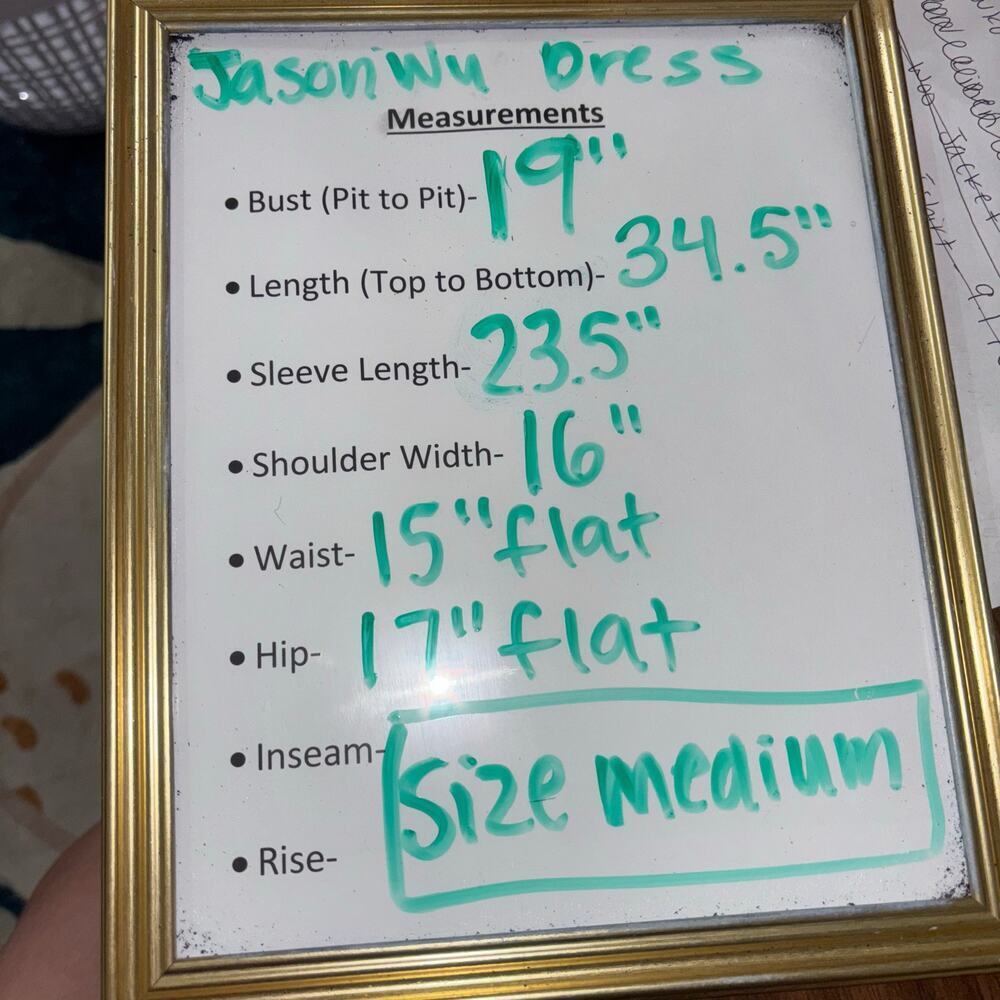 Jason Wu Dress
Measurements
• Bust (Pit to Pit)- 19"
• Length (Top to Bottom)- 34.5"
• Sleeve Length- 23.5"
• Shoulder Width- 16"
• Waist- 15" flat
• Hip- 17" flat
• Inseam-
Size medium
• Rise-
Jacket